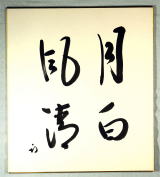 月白
風清